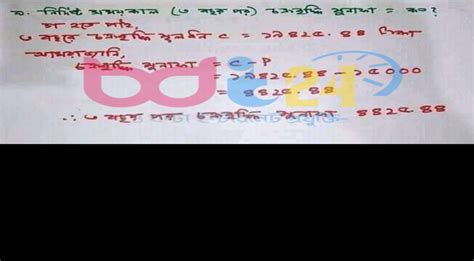 ২. নির্দিষ্ট সময়কাল (৩ বছর পর) চক্রবৃদ্ধি মুনাফা = কত?
'ক' হতে পাই,
৩ বছরে চক্রবৃদ্ধি মূলধন C = ১৯৪২৫.৪৪ টাকা
আমরা জানি,
চক্রবৃদ্ধি মুনাফা = C - P
= ১৯৪২৫.৪৪ - ১৫০০০
= ৪৪২৫.৪৪
∴ ৩ বছর পর চক্রবৃদ্ধি মুনাফা ৪৪২৫.৪৪
bdi24